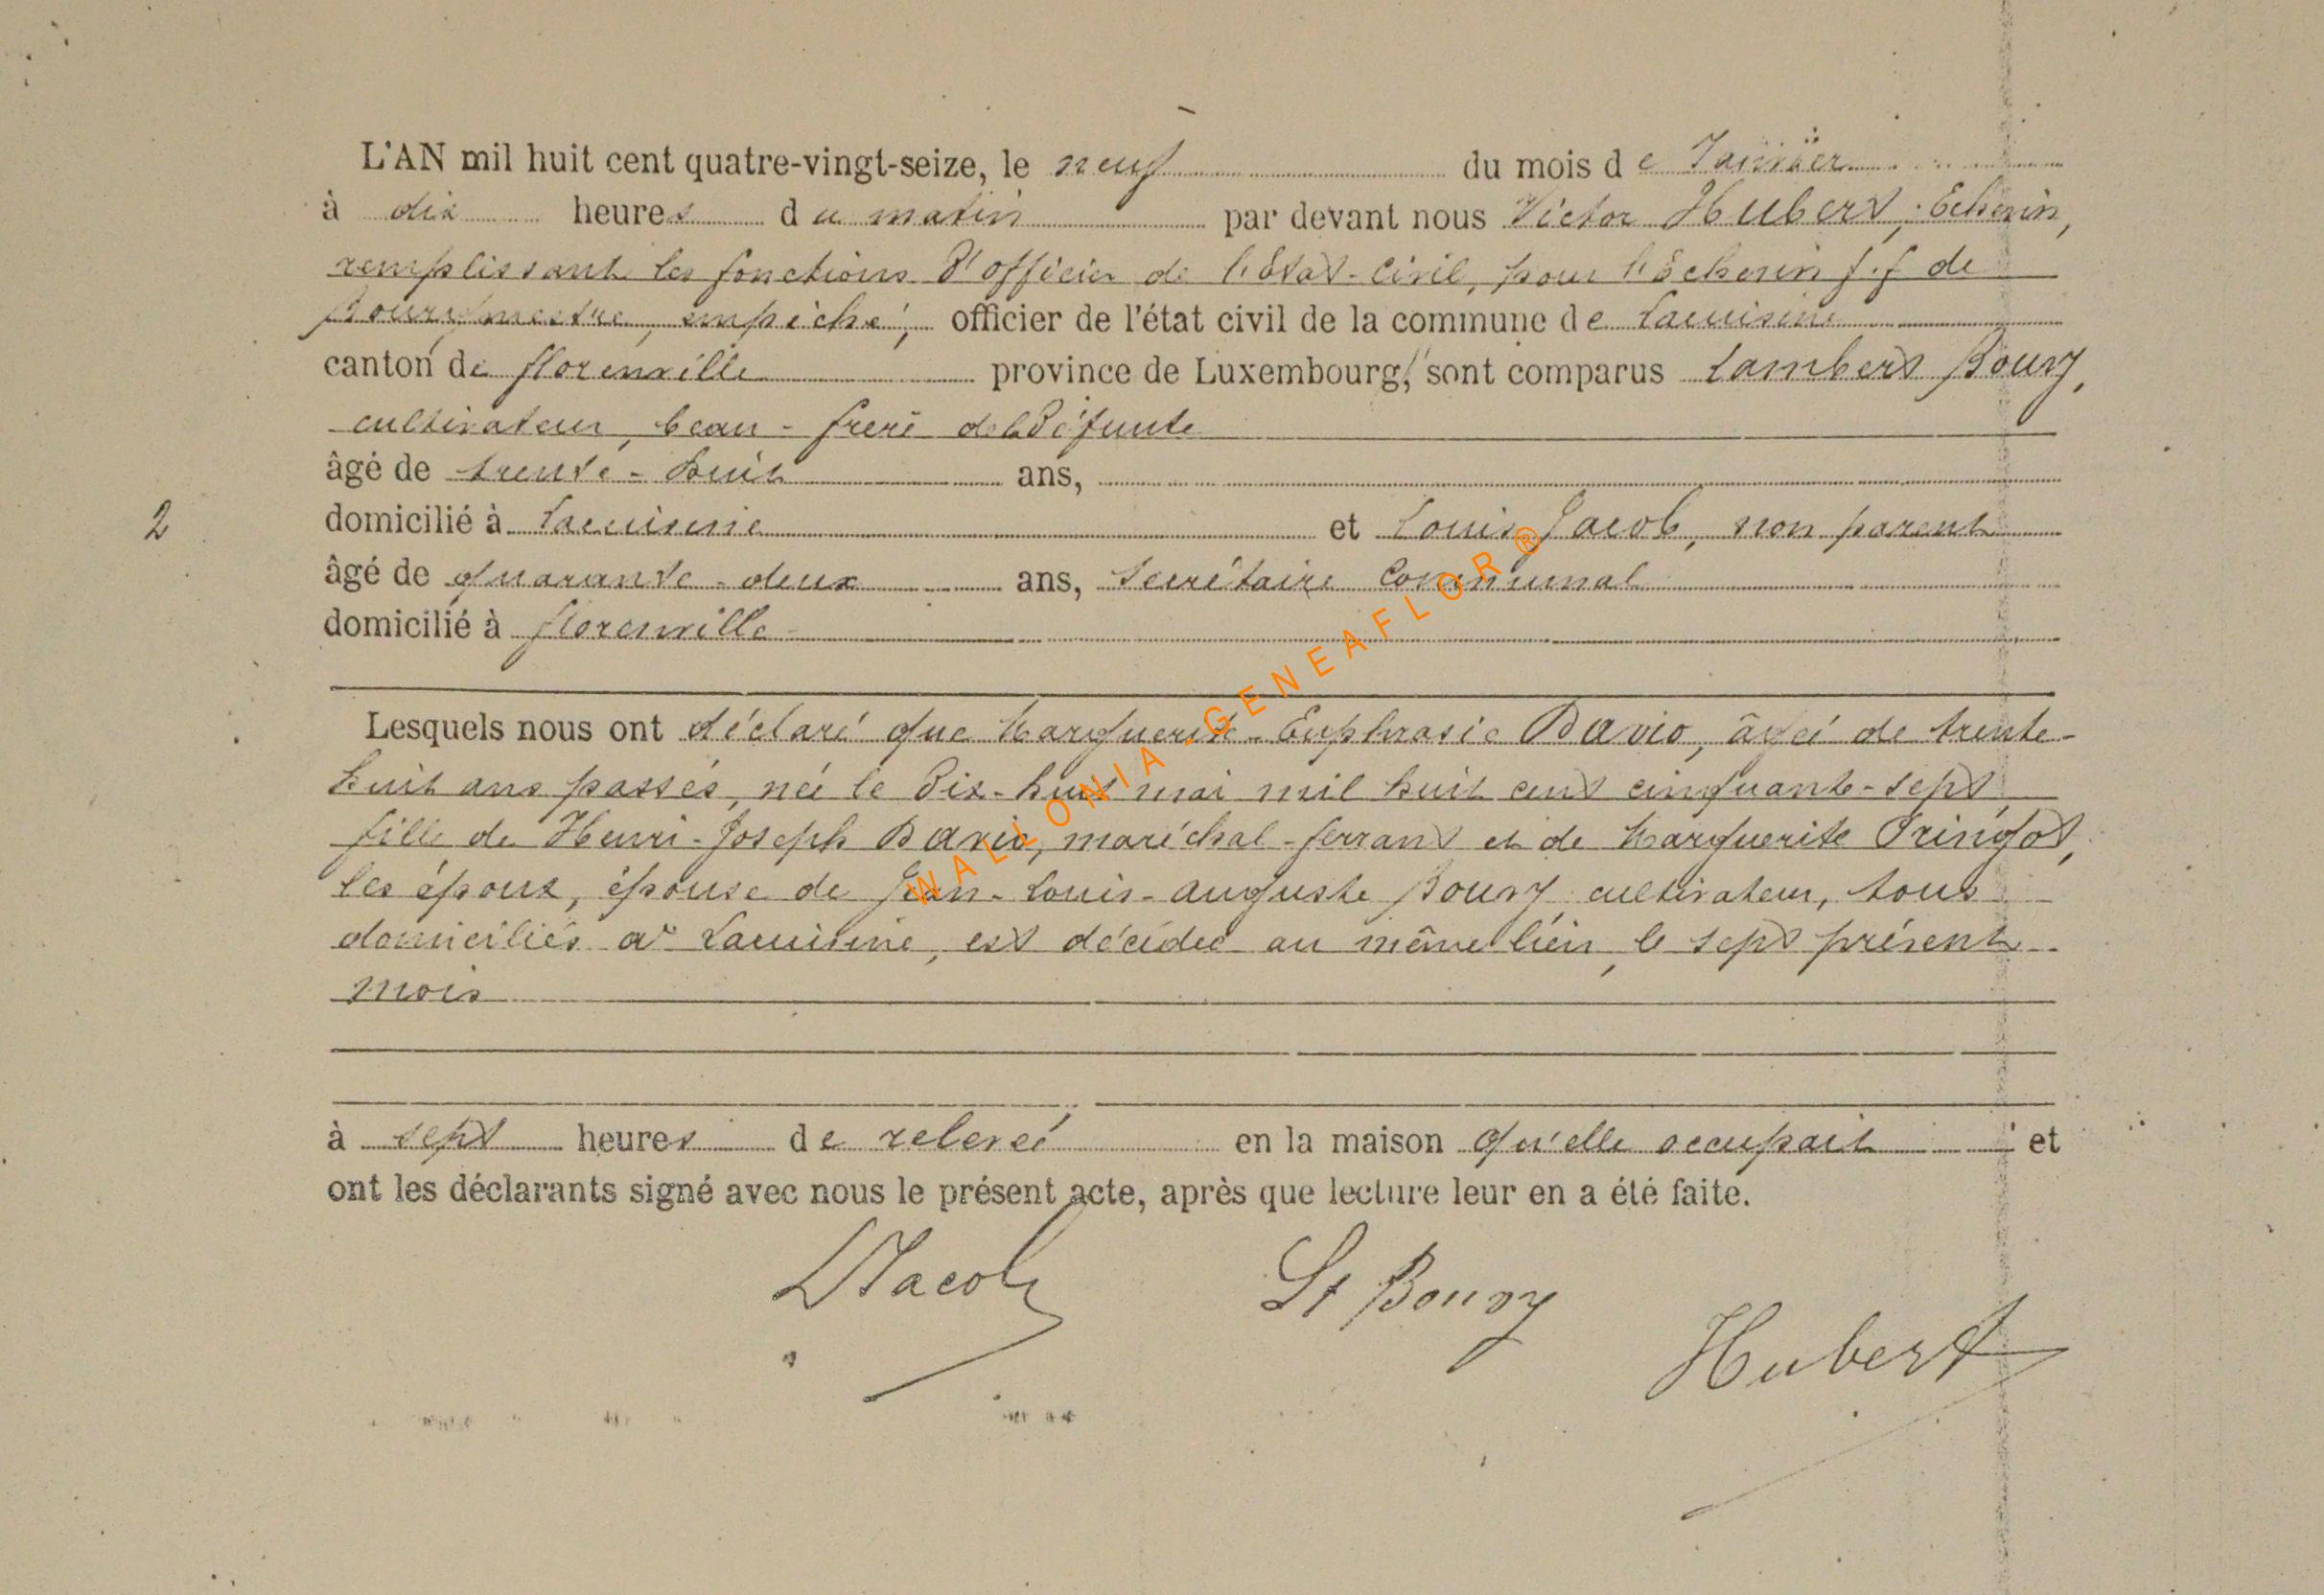 L'AN mil huit cent quatre-vingt-seize, le neuf du mois de Janvier
à dix heures du matin par devant nous Victor Hubert, Echevin,
remplissant les fonctions d'officier de l'état-civil, pour l'échevin f.f de
Bourgmestre, empêché, officier de l'état civil de la commune de Lacuisine
canton de florenville province de Luxembourg, sont comparus Lambert Boury,
cultivateur, beau-frere de la défunte
âgé de trente-huit ans,
2
domicilié à Lacuisine et Louis Jacob, non parent
âgé de quarante-deux ans, Secrétaire Communal
domicilié à florenville
Lesquels nous ont déclaré que Marguerite-Euphrasie Davio, âgée de trente-
huit ans passés, née le dix-huit mai mil huit cent cinquante-sept
fille de Henri-Joseph Davio, maréchal-ferrant et de Marguerite Pringot,
les époux, épouse de Jean-Louis-Auguste Boury cultivateur, tous
domiciliés à Lacuisine, est décédée au même lieu, le sept présent
mois
à sept heures de relevée en la maison qu'elle occupait et
ont les déclarants signé avec nous le présent acte, après que lecture leur en a été faite.
LJacob Lt Boury
Hubert
WALLONIA GENEAFLOR ®